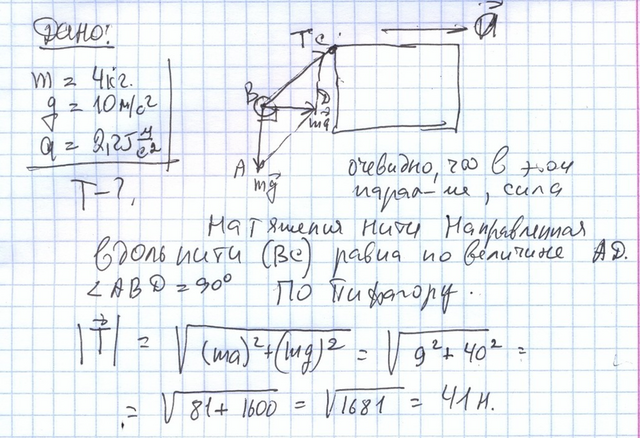 Дано:
m = 4кг.
g = 10 м/с²
a = 2,25 м/с²
T - ?,
T C a
B D
mg
A
mg
очевидно, что в этом
паралл-ме, сила
натяжения нити направленная
вдоль нити (BC) равна по величине AD.
∠ABD = 90° По Пифагору.
|T| = √(ma)²+(mg)² = √9²+40² =
= √81+1600 = √1681 = 41 н.